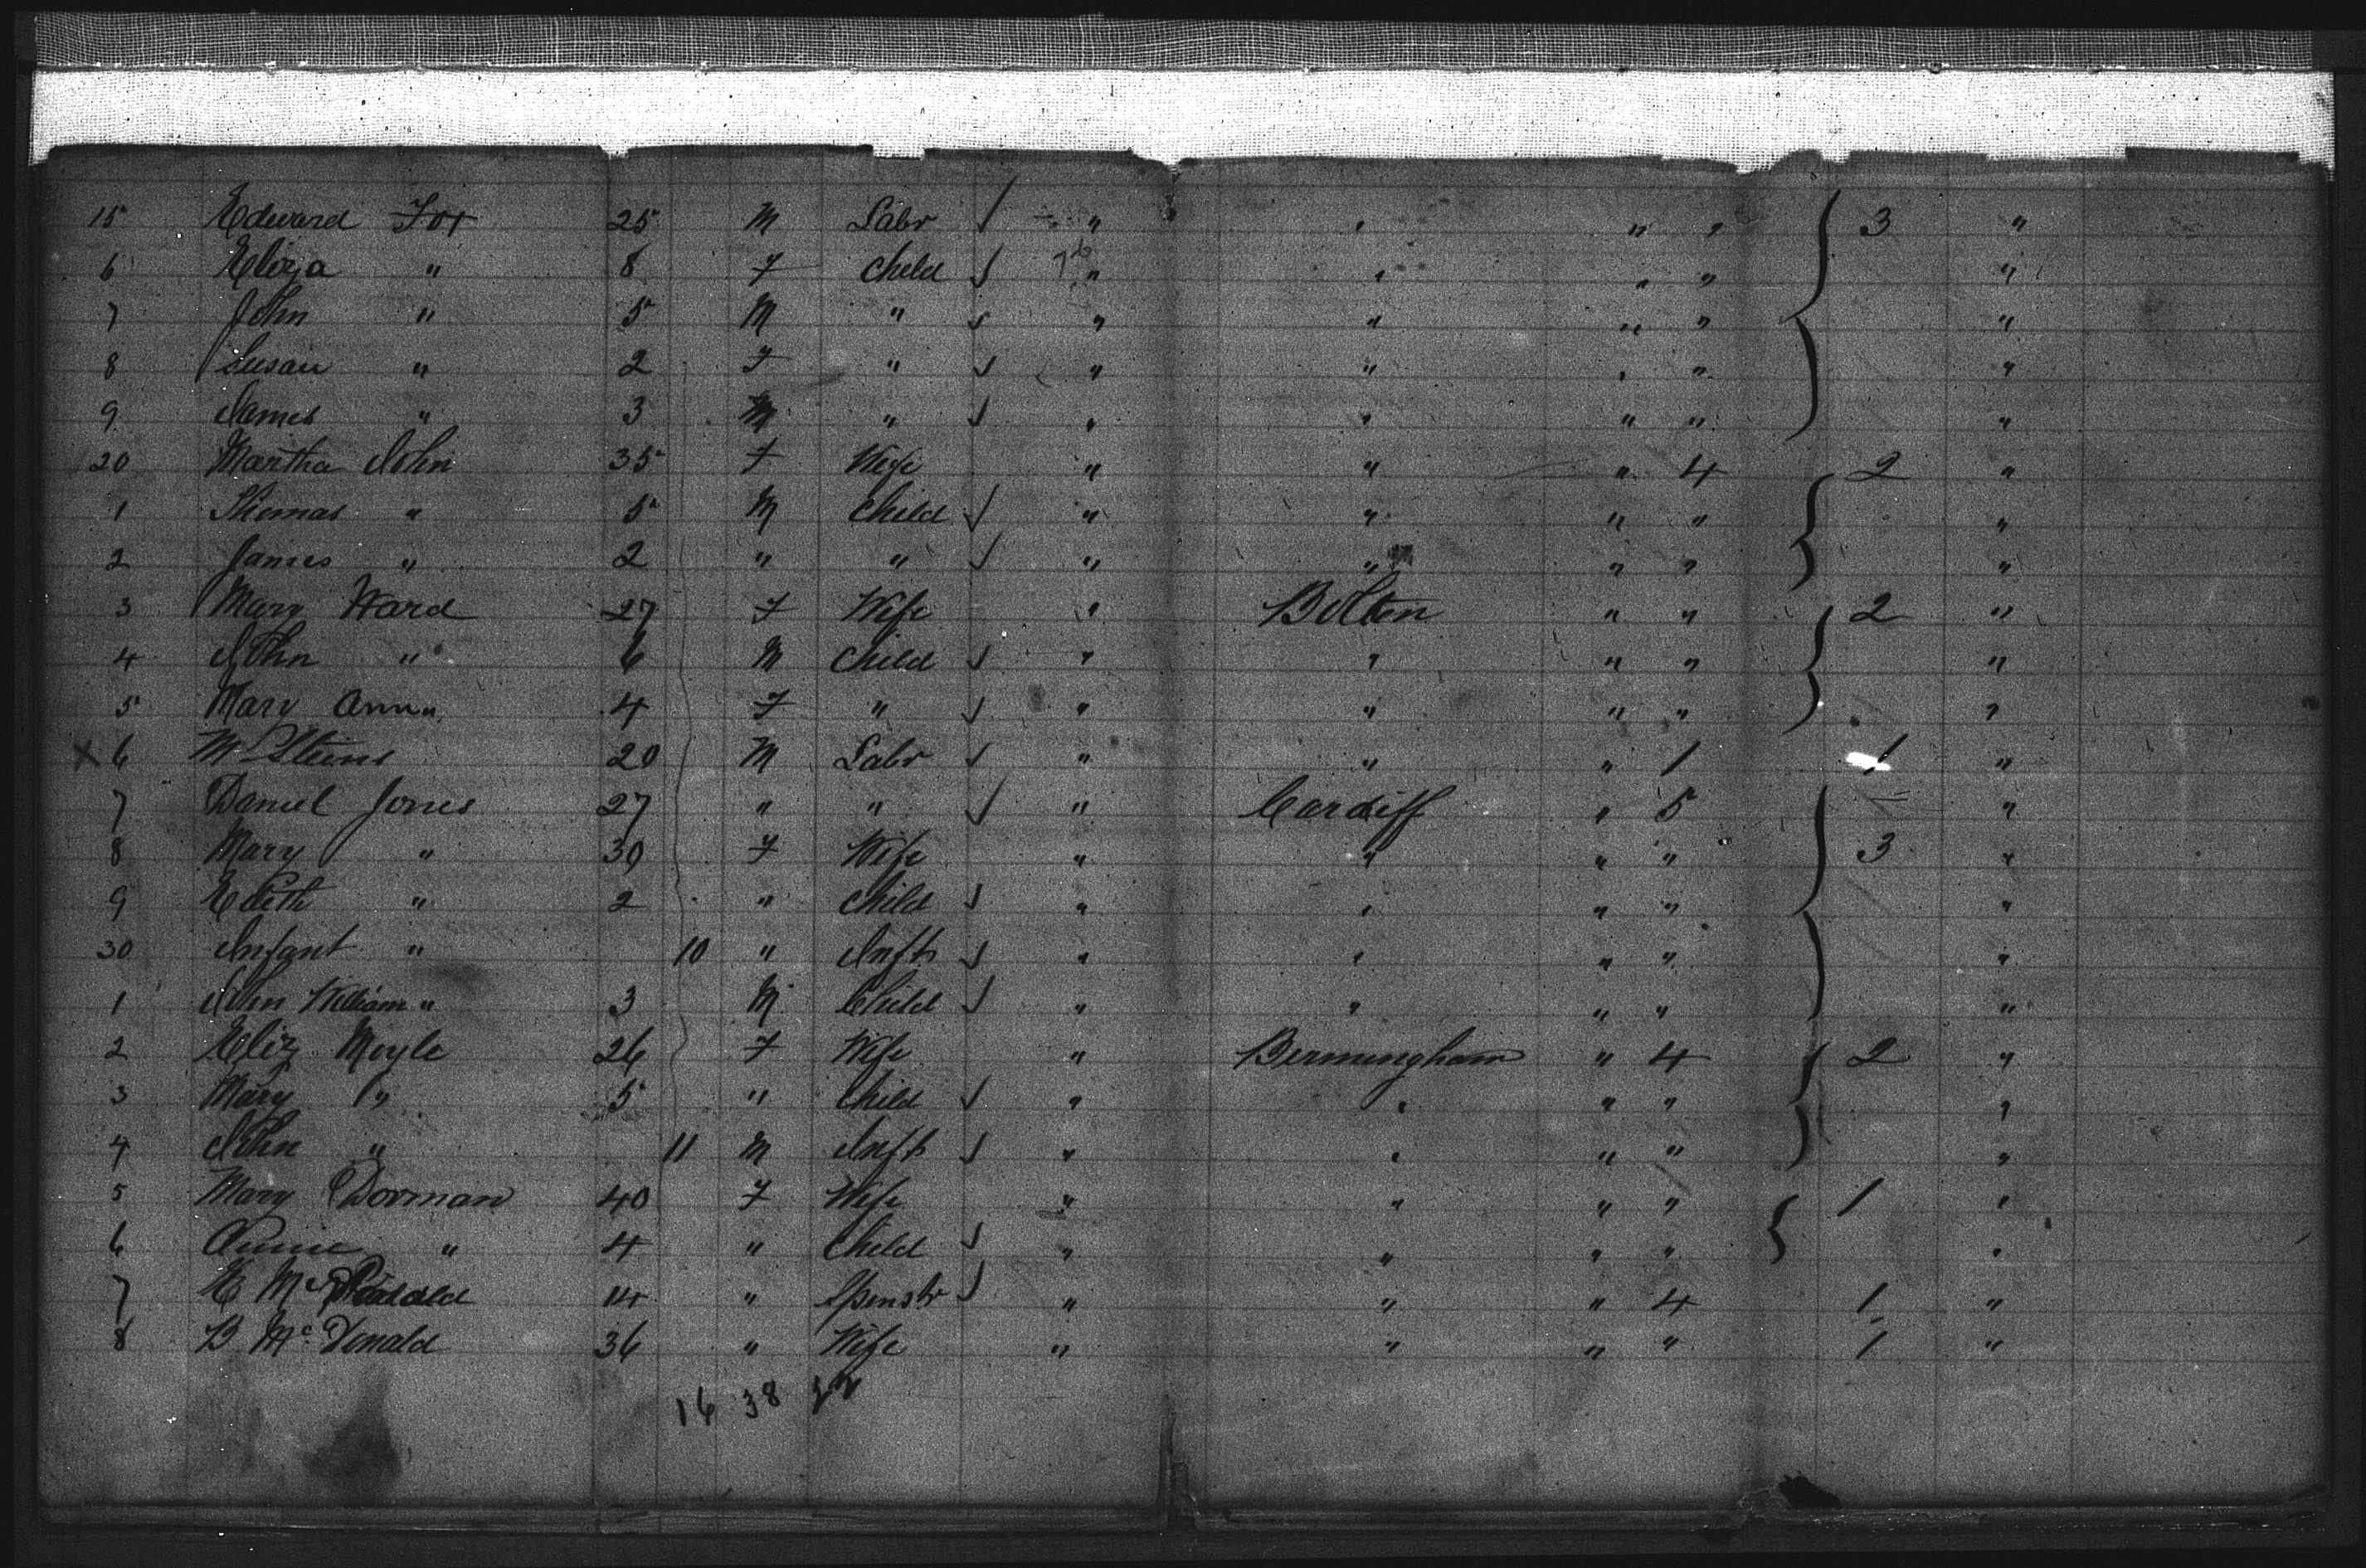 15 Edward Fox 25 M Labr √ " " " " 3 "
6 Eliza " 8 F Child √ " " " " "
7 John " 5 M " √ " " " " "
8 Susan " 2 F " √ " " " " "
9 James " 3 M " √ " " " " "
20 Martha John 35 F Wife " " " 4 2 "
1 Thomas " 5 M Child √ " " " " "
2 James " 2 " " √ " " " " "
3 Mary Ward 27 F Wife " Bolton " " 2 "
4 John " 6 M Child √ " " " " "
5 Mary Ann " 4 F " √ " " " " "
X 6 M 20 M Labr √ " " " 1 1 "
7 Daniel Jones 27 " " √ " Cardiff " 5 "
8 Mary " 30 F Wife " " " " 3 "
9 Edith " 2 " Child √ " " " " "
30 Infant " 10 " Inft √ " " " " "
1 John William " 3 M Child √ " " " " "
2 Eliz Moyle 26 F Wife " Birmingham " 4 2 "
3 Mary " 5 " Child √ " " " " "
4 John " 11 M Inft √ " " " " "
5 Mary Dorman 40 F Wife " " " " 1 "
6 Annie " 4 " Child √ " " " " "
7 E Mc Donald 14 " Spinstr √ " " " 4 1 "
8 B Mc Donald 36 " Wife " " " " 1 "
16 38